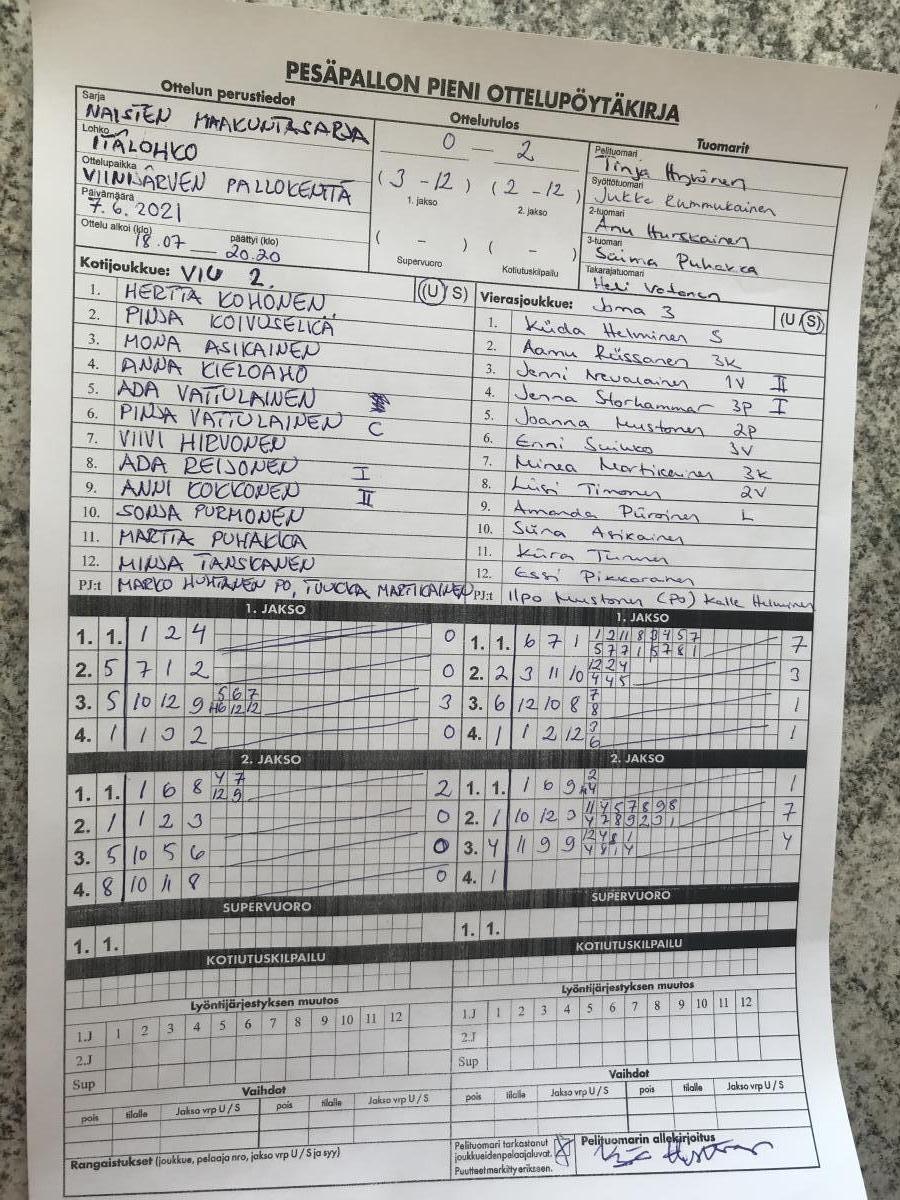 PESÄPALLON PIENI OTTELUPÖYTÄKIRJA
Ottelun perustiedot
Sarja
NAISTEN MAAKUNTASARJA
Lohko
ITÄLOHKO
Ottelupaikka
VIINIJÄRVEN PALLOKENTTÄ
Päivämäärä
7.6.2021
Ottelu alkoi (klo) 18.07 päättyi (klo) 20.20
Ottelutulos
0 – 2
(3 - 12) (2 - 12)
1. jakso 2. jakso
( - ) ( - )
Supervuoro Kotiutuskilpailu
Tuomarit
Pelituomari
Tinja
Syöttötuomari
Jukka Rummukainen
2-tuomari
Anu Hurskainen
3-tuomari
Saima Puhakka
Takarajatuomari
Heli Vatanen
Kotijoukkue: VIU 2. (U S)
1. HERTTA KOHONEN
2. PINJA KOIVUSELKÄ
3. MONA ASIKAINEN
4. ANNA KIELOAHO
5. ADA VATTULAINEN
6. PINJA VATTULAINEN C
7. VIIVI HIRVONEN
8. ADA REIJONEN I
9. ANNI KOKKONEN II
10. SONJA PURMONEN
11. MARTTA PUHAKKA
12. MINJA TANSKANEN
PJ:t MARKO HUHTANEN PO, TUUKKA MARTIKAINEN
Vierasjoukkue: Joma 3 (U S)
1. Helminen S
2. Aamu Riissanen 3K
3. Jenni Nevalainen 1V II
4. Jenna Storhammar 3P I
5. Joanna Mustonen 2P
6. Enni 3V
7. Minea Martikainen 3K
8. Liisi Timonen 2V
9. Amanda Piiroinen L
10. Siina Asikainen
11. Kiira
12. Essi Pikkarainen
PJ:t Ilpo Mustonen (PO) Kalle Helminen
1. JAKSO
1. 1. 1 2 4 0
2. 5 7 1 2 0
3. 5 10 12 9 5 6 7 3
12 12
4. 1 1 2 0
1. JAKSO
1. 1. 6 7 1 1 2 11 8 3 4 5 7 7
5 7 7 1 5 7 8 1
2. 2 3 11 10 12 2 4 3
4 4 5
3. 6 12 10 8 7 1
8
4. 1 1 2 12 3 1
6
2. JAKSO
1. 1. 1 6 8 4 7 2
12 9
2. 1 1 2 3 0
3. 5 10 5 6 0
4. 8 10 11 8 0
2. JAKSO
1. 1. 1 6 9 2 1
4
2. 1 10 12 3 11 4 5 7 8 9 8 7
4 7 8 9 2 3 1
3. 4 11 9 9 12 4 8 1 4
4 8 1 4
4. 1
SUPERVUORO
1. 1.
SUPERVUORO
1. 1.
KOTIUTUSKILPAILU
KOTIUTUSKILPAILU
Lyöntijärjestyksen muutos
1.J 1 2 3 4 5 6 7 8 9 10 11 12
2.J
Sup
Lyöntijärjestyksen muutos
1.J 1 2 3 4 5 6 7 8 9 10 11 12
2.J
Sup
Vaihdot
pois tilalle Jakso vrp U / S pois tilalle Jakso vrp U / S
Vaihdot
pois tilalle Jakso vrp U / S pois tilalle Jakso vrp U / S
Rangaistukset (joukkue, pelaaja nro, jakso vrp U / S ja syy)
Pelituomari tarkastanut
joukkueiden pelaajaluvat.
Puutteet merkitty erikseen.
Pelituomarin allekirjoitus